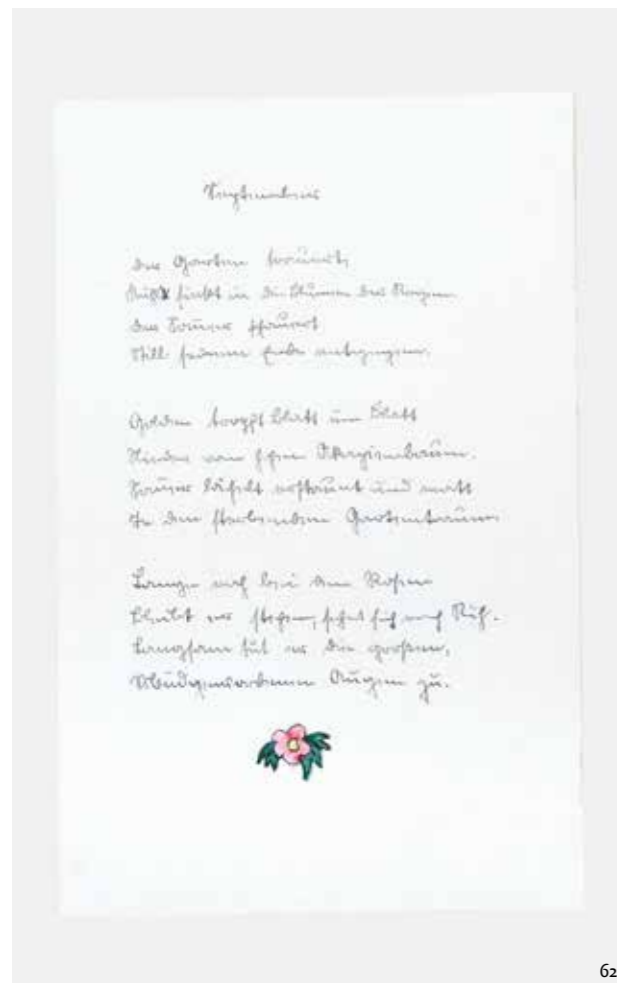 September
Der Garten trauert,
Kühl sinkt in die Blumen der Regen.
Der Sommer schauert
Still seinem Ende entgegen.
Golden tropft Blatt um Blatt
Nieder vom hohen Akazienbaum.
Sommer lächelt erstaunt und matt
In den sterbenden Gartentraum.
Lange noch bei den Rosen
Bleibt er stehen, sehnt sich nach Ruh.
Langsam tut er die großen,
Müdgewordenen Augen zu.
62